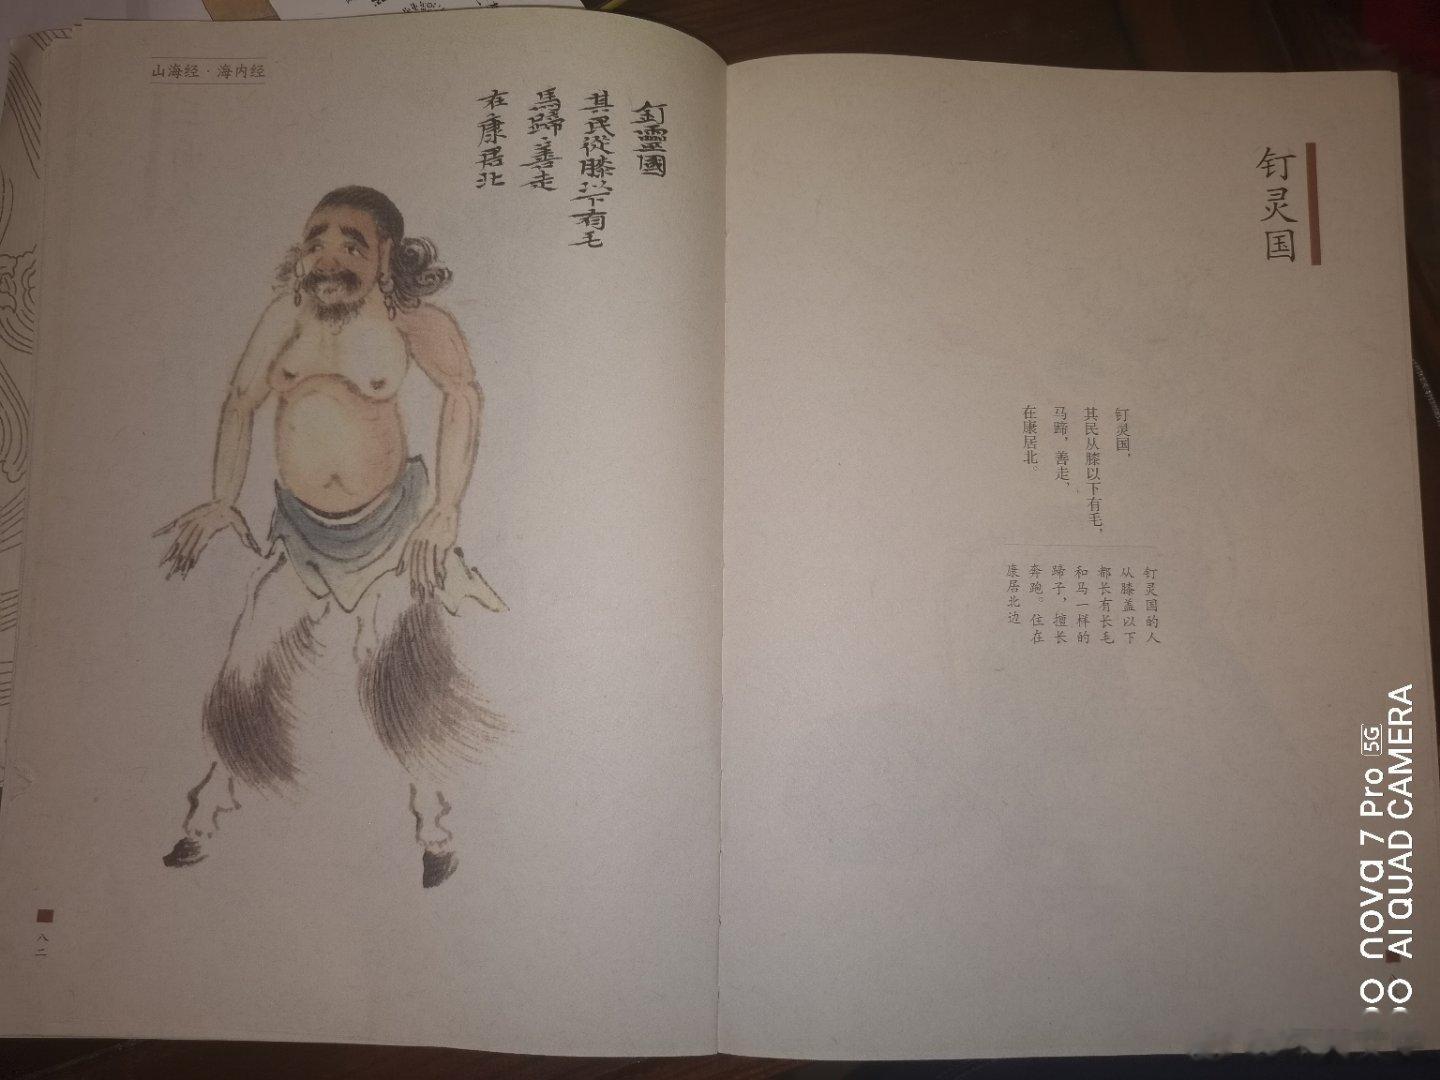 山海经·海内经
釘靈國
其民從膝以下有毛
馬蹄善走
在康居北
八二
钉灵国
钉灵国，
其民从膝以下有毛，
马蹄，善走，
在康居北。
钉灵国的人
从膝盖以下
都长有长毛
和马一样的
蹄子，擅长
奔跑。住在
康居北边
nova 7 Pro 5G
AI QUAD CAMERA